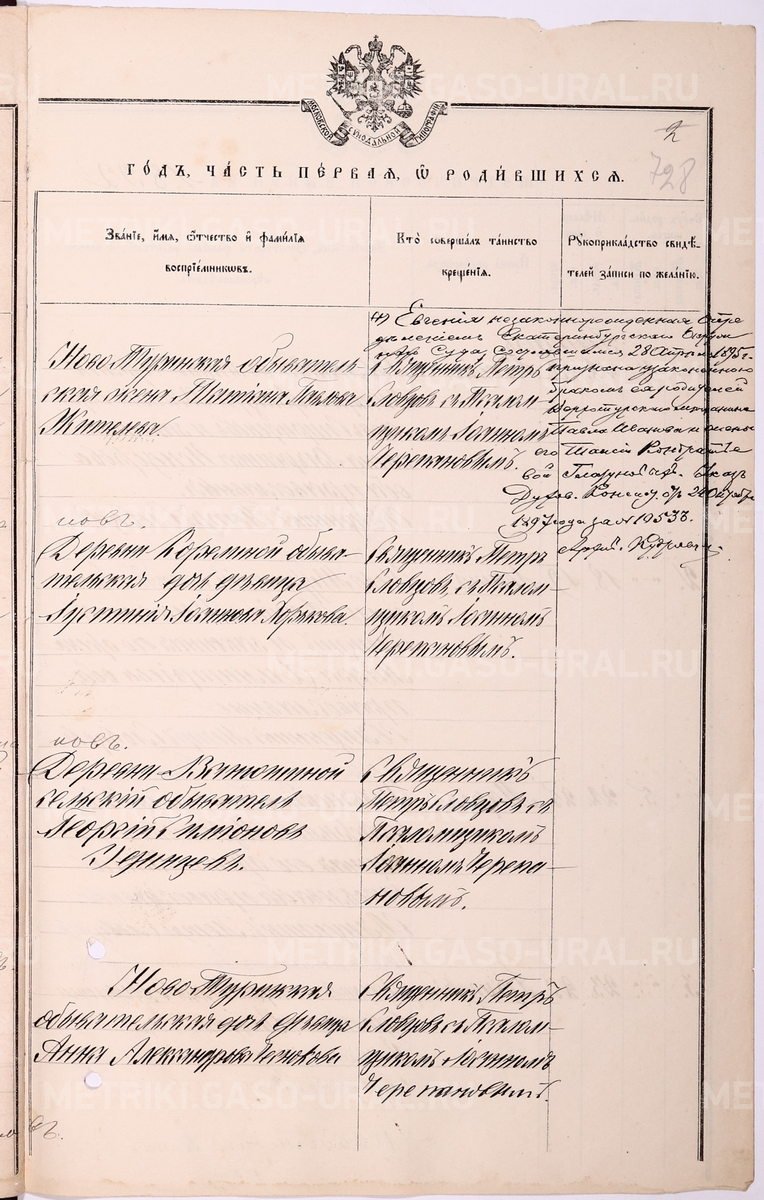 МОСКОВСКОЙ СѴНОДАЛЬНОЙ ТИПОГРАФІИ
2
728
ГОДЪ, ЧАСТЬ ПЕРВАЯ, Ѡ РОДИВШИХСЯ.
Званіе, имя, отчество и фамилія
воспріемниковъ.
Кто совершалъ таинство
крещенія.
Рукоприкладство свидѣ-
телей записи по желанію.
Ново Туринская обыватель-
ская жена Татіана
Священникъ Петръ
Словцовъ съ Псалом-
щикомъ Іоанномъ
Черепановымъ.
(*) Евгенія незаконнорожденная опре
дѣленіемъ Екатеринбургскаго Окруж
наго Суда состоявшимся 28 Апрѣля 1895 г.
признана узаконенною
бракомъ ея родителей
Верхотурскаго мѣщанина
Павла Иванова и жены
его Таисіи Кондратье
вой Указ
Духов. Консист. отъ 24 Октября
1897 года за № 19533.
новъ.
Деревни обыва-
тельская дочь дѣвица
Іустинія Іоаннова
Священникъ Петръ
Словцовъ съ Псалом-
щикомъ Іоанномъ
Черепановымъ.
новъ.
Деревни
сельскій обыватель
Георгій Симіоновъ
Удинцевъ.
Священникъ
Петръ Словцовъ съ
Псаломщикомъ
Іоанномъ Черепа-
новымъ.
Ново Туринская
обывательская дочь дѣвица
Анна Александрова
Священникъ Петръ
Словцовъ съ Псалом-
щикомъ Іоанномъ
Черепановымъ.
METRIKI.GASO-URAL.RU